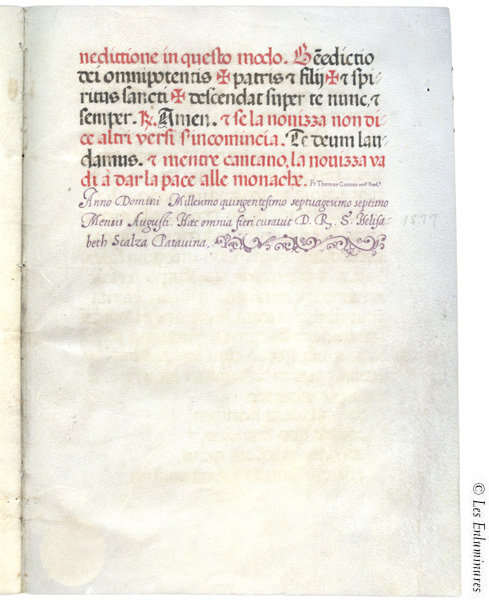 nedittione in questo modo. Bēedictio
dei omnipotentis ✠ patris & filij ✠ & spi-
ritus sancti ✠ descendat super te nunc, &
semper. ℟. Amen. & se la nouizza non di
ce altri versi s'incomincia. Te deum lau
damus. & mentre cantano, la nouizza va
di à dar la pace alle monache. Fr Thomas
Anno Domini Millesimo quingentesimo septuagesimo septimo
Mensis Augusti. Hæc omnia fieri curauit D. R. S. Helisa-
beth Scalza Patauina.
1577
© Les Enluminures